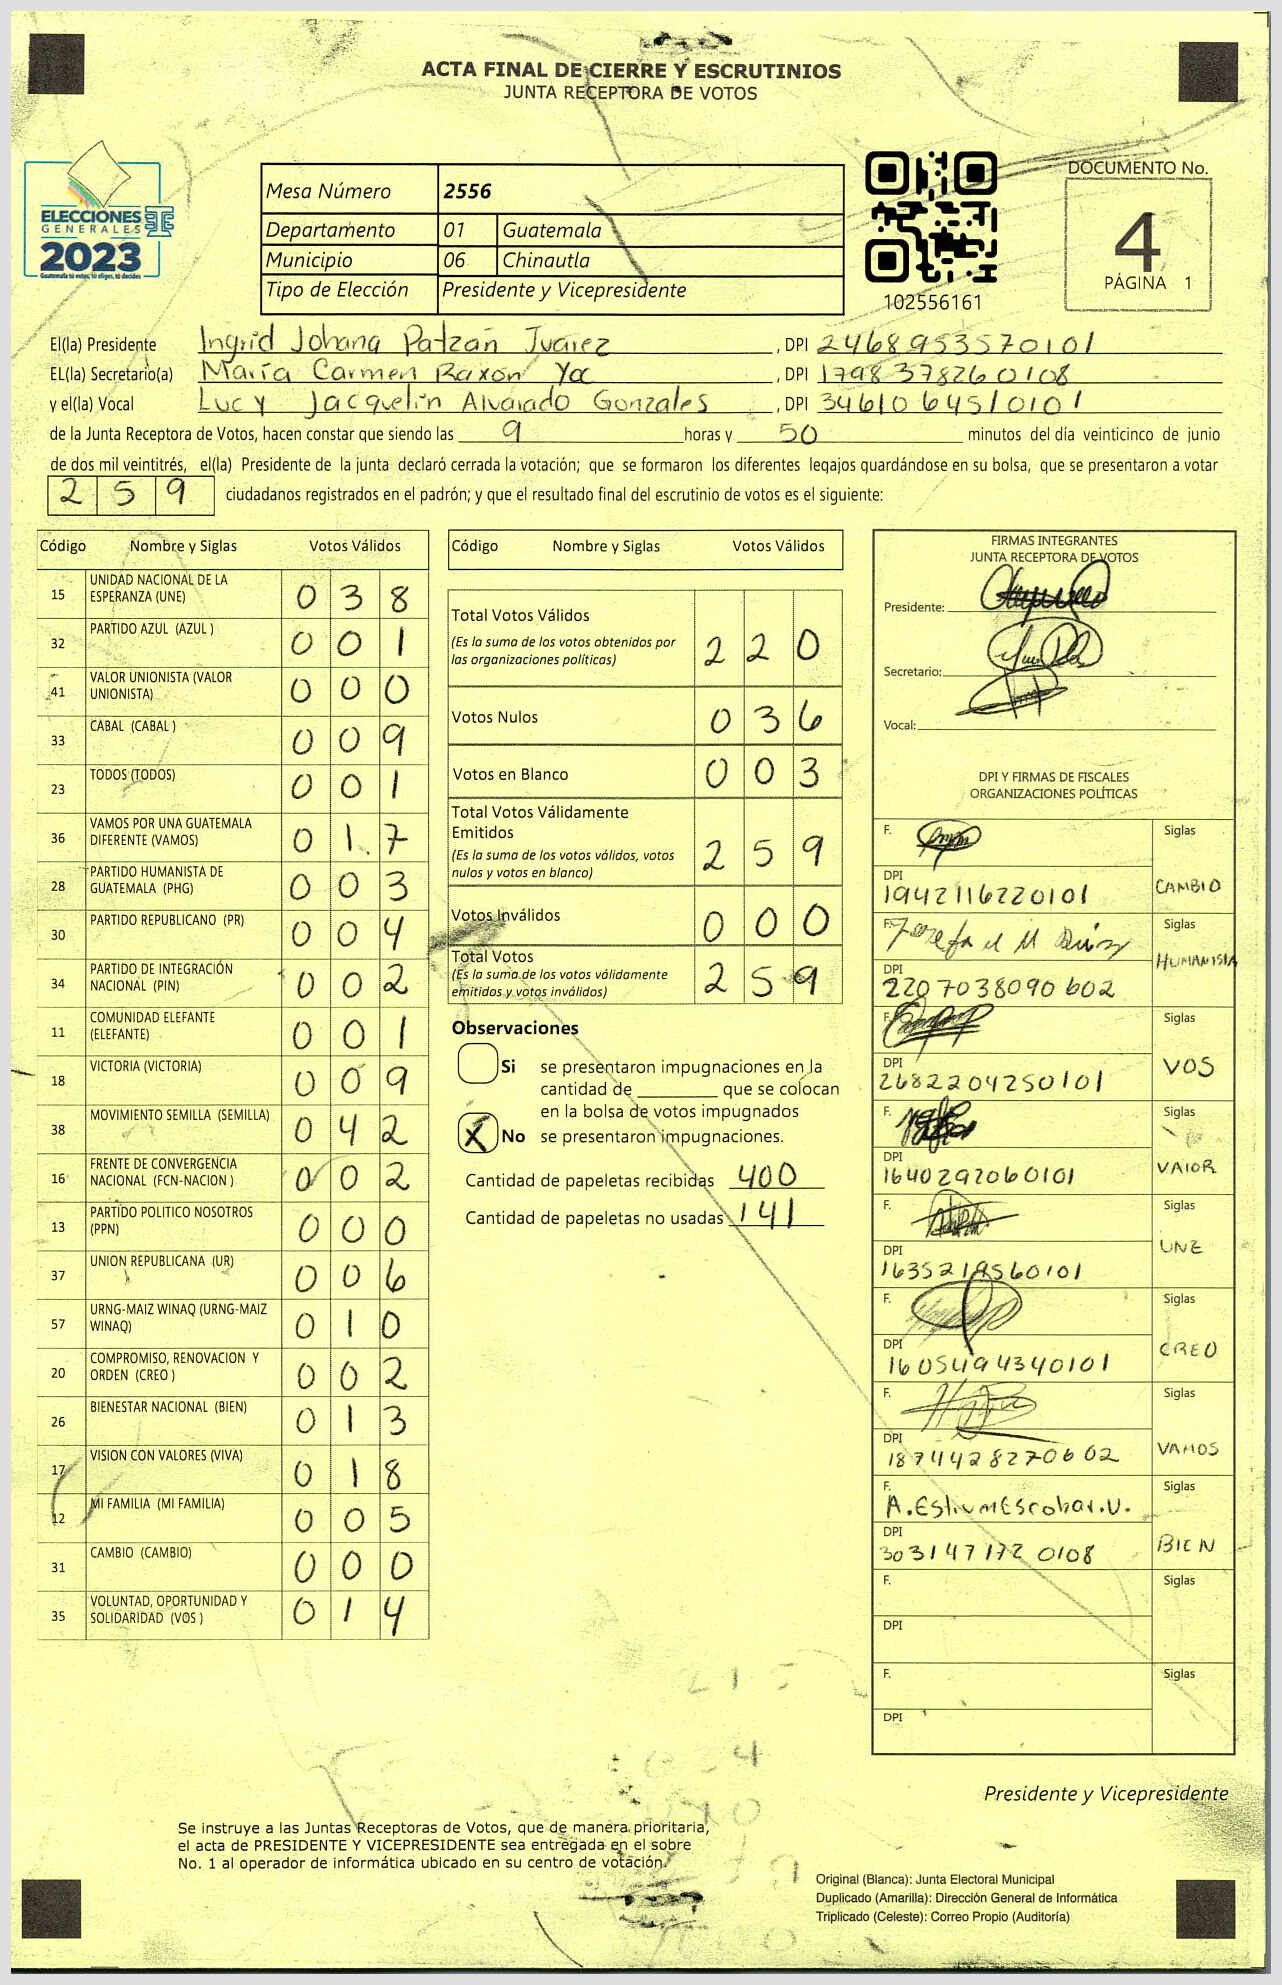 ACTA FINAL DE CIERRE Y ESCRUTINIOS
JUNTA RECEPTORA DE VOTOS
ELECCIONES
GENERALES
2023
Guatemala tú votas, tú eliges, tú decides
Mesa Número 2556
Departamento 01 Guatemala
Municipio 06 Chinautla
Tipo de Elección Presidente y Vicepresidente
102556161
DOCUMENTO No.
4
PÁGINA 1
El(la) Presidente Ingrid Johana Patzán Juarez , DPI 2468953570101
EL(la) Secretario(a) María Carmen Raxón Yoc , DPI 1798378260108
y el(la) Vocal Lucy Jacquelin Alvarado Gonzales , DPI 3461064510101
de la Junta Receptora de Votos, hacen constar que siendo las 9 horas y 50 minutos del día veinticinco de junio
de dos mil veintitrés, el(la) Presidente de la junta declaró cerrada la votación; que se formaron los diferentes legajos guardándose en su bolsa, que se presentaron a votar
259 ciudadanos registrados en el padrón; y que el resultado final del escrutinio de votos es el siguiente:
Código Nombre y Siglas Votos Válidos
15 UNIDAD NACIONAL DE LA ESPERANZA (UNE) 038
32 PARTIDO AZUL (AZUL ) 001
41 VALOR UNIONISTA (VALOR UNIONISTA) 000
33 CABAL (CABAL ) 009
23 TODOS (TODOS) 001
36 VAMOS POR UNA GUATEMALA DIFERENTE (VAMOS) 017
28 PARTIDO HUMANISTA DE GUATEMALA (PHG) 003
30 PARTIDO REPUBLICANO (PR) 004
34 PARTIDO DE INTEGRACIÓN NACIONAL (PIN) 002
11 COMUNIDAD ELEFANTE (ELEFANTE) 001
18 VICTORIA (VICTORIA) 009
38 MOVIMIENTO SEMILLA (SEMILLA) 042
16 FRENTE DE CONVERGENCIA NACIONAL (FCN-NACION ) 002
13 PARTIDO POLITICO NOSOTROS (PPN) 000
37 UNION REPUBLICANA (UR) 006
57 URNG-MAIZ WINAQ (URNG-MAIZ WINAQ) 010
20 COMPROMISO, RENOVACION Y ORDEN (CREO ) 002
26 BIENESTAR NACIONAL (BIEN) 013
17 VISION CON VALORES (VIVA) 018
12 MI FAMILIA (MI FAMILIA) 005
31 CAMBIO (CAMBIO) 000
35 VOLUNTAD, OPORTUNIDAD Y SOLIDARIDAD (VOS ) 014
Código Nombre y Siglas Votos Válidos
Total Votos Válidos 220
(Es la suma de los votos obtenidos por
las organizaciones políticas)
Votos Nulos 036
Votos en Blanco 003
Total Votos Válidamente
Emitidos 259
(Es la suma de los votos válidos, votos
nulos y votos en blanco)
Votos Inválidos 000
Total Votos 259
(Es la suma de los votos válidamente
emitidos y votos inválidos)
Observaciones
Si se presentaron impugnaciones en la
cantidad de ________ que se colocan
en la bolsa de votos impugnados
X No se presentaron impugnaciones.
Cantidad de papeletas recibidas 400
Cantidad de papeletas no usadas 141
FIRMAS INTEGRANTES
JUNTA RECEPTORA DE VOTOS
Presidente:
Secretario:
Vocal:
DPI Y FIRMAS DE FISCALES
ORGANIZACIONES POLÍTICAS
F. Siglas
DPI 1942116220101 CAMBIO
F. Siglas
DPI 2207038090602 HUMANISTA
F. Siglas
DPI 2682204250101 VOS
F. Siglas
DPI 1640292060101 VALOR
F. Siglas
DPI 1635219560101 UNE
F. Siglas
DPI 1605494340101 CREO
F. Siglas
DPI 1874428270602 VAMOS
F. A. Estivm Escobar. U. Siglas
DPI 3031471720108 BIEN
F. Siglas
DPI
F. Siglas
DPI
Presidente y Vicepresidente
Se instruye a las Juntas Receptoras de Votos, que de manera prioritaria,
el acta de PRESIDENTE Y VICEPRESIDENTE sea entregada en el sobre
No. 1 al operador de informática ubicado en su centro de votación.
Original (Blanca): Junta Electoral Municipal
Duplicado (Amarilla): Dirección General de Informática
Triplicado (Celeste): Correo Propio (Auditoría)